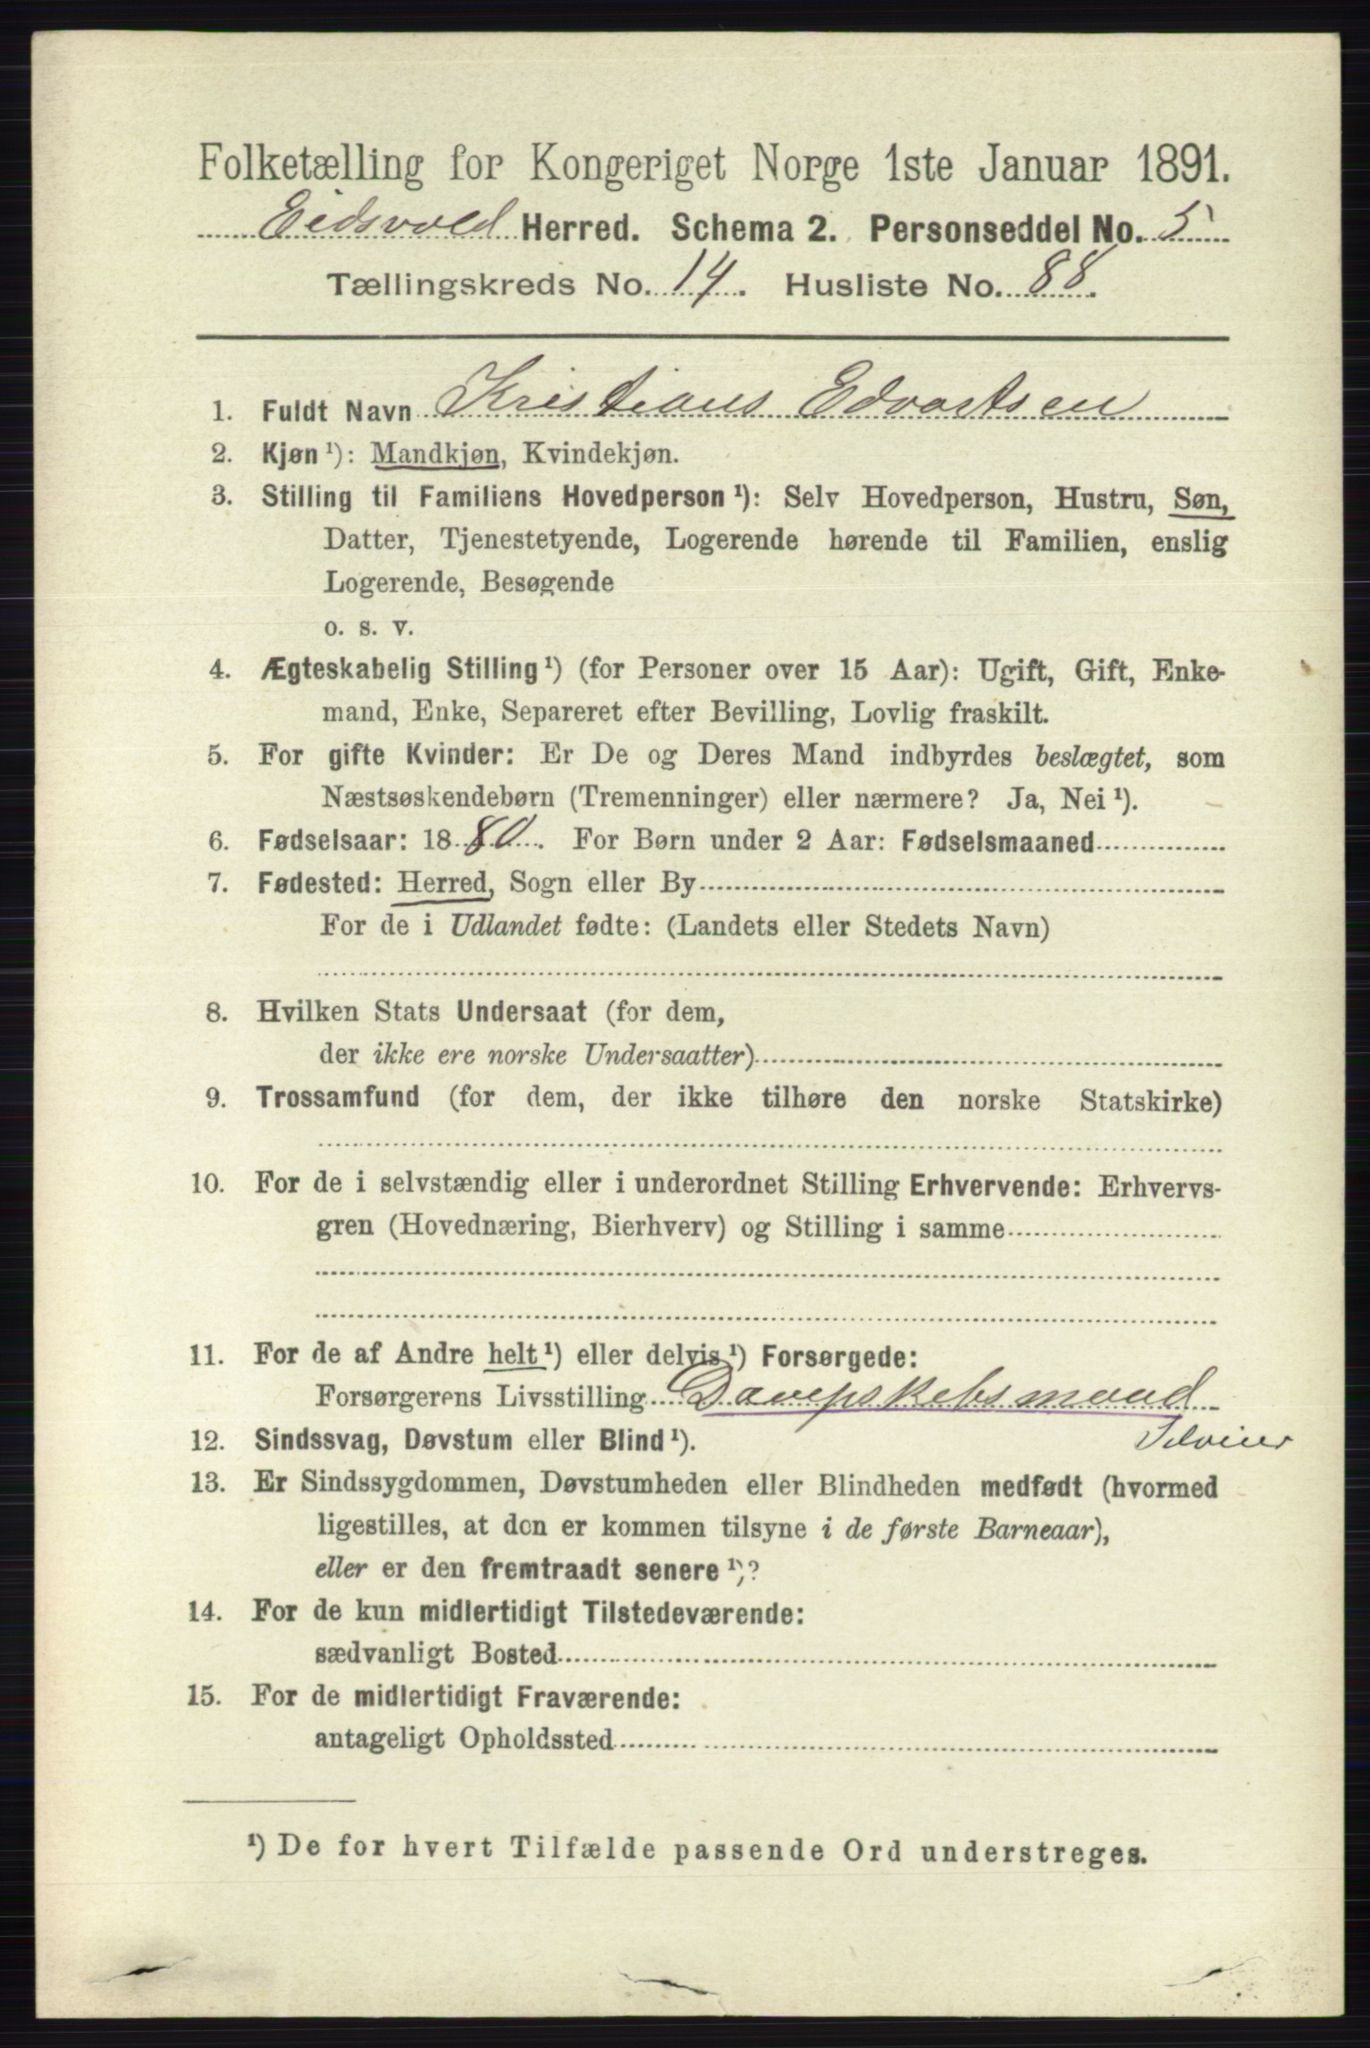 Folketælling for Kongeriget Norge 1ste Januar 1891.
Eidsvold Herred. Schema 2. Personseddel No. 5
Tællingskreds No. 14. Husliste No. 88.
1. Fuldt Navn Kristians Edvartsen
2. Kjøn ¹): Mandkjøn, Kvindekjøn.
3. Stilling til Familiens Hovedperson ¹): Selv Hovedperson, Hustru, Søn,
Datter, Tjenestetyende, Logerende hørende til Familien, enslig
Logerende, Besøgende
o. s. v.
4. Ægteskabelig Stilling ¹) (for Personer over 15 Aar): Ugift, Gift, Enke-
mand, Enke, Separeret efter Bevilling, Lovlig fraskilt.
5. For gifte Kvinder: Er De og Deres Mand indbyrdes beslægtet, som
Næstsøskendebørn (Tremenninger) eller nærmere? Ja, Nei ¹).
6. Fødselsaar: 1880. For Børn under 2 Aar: Fødselsmaaned
7. Fødested: Herred, Sogn eller By
For de i Udlandet fødte: (Landets eller Stedets Navn)
8. Hvilken Stats Undersaat (for dem,
der ikke ere norske Undersaatter)
9. Trossamfund (for dem, der ikke tilhøre den norske Statskirke)
10. For de i selvstændig eller i underordnet Stilling Erhvervende: Erhvervs-
gren (Hovednæring, Bierhverv) og Stilling i samme
11. For de af Andre helt ¹) eller delvis ¹) Forsørgede:
Forsørgerens Livsstilling Dampskebsmand
12. Sindssvag, Døvstum eller Blind ¹).
13. Er Sindssygdommen, Døvstumheden eller Blindheden medfødt (hvormed
ligestilles, at den er kommen tilsyne i de første Barneaar),
eller er den fremtraadt senere ¹)?
14. For de kun midlertidigt Tilstedeværende:
sædvanligt Bosted
15. For de midlertidigt Fraværende:
antageligt Opholdssted
¹) De for hvert Tilfælde passende Ord understreges.